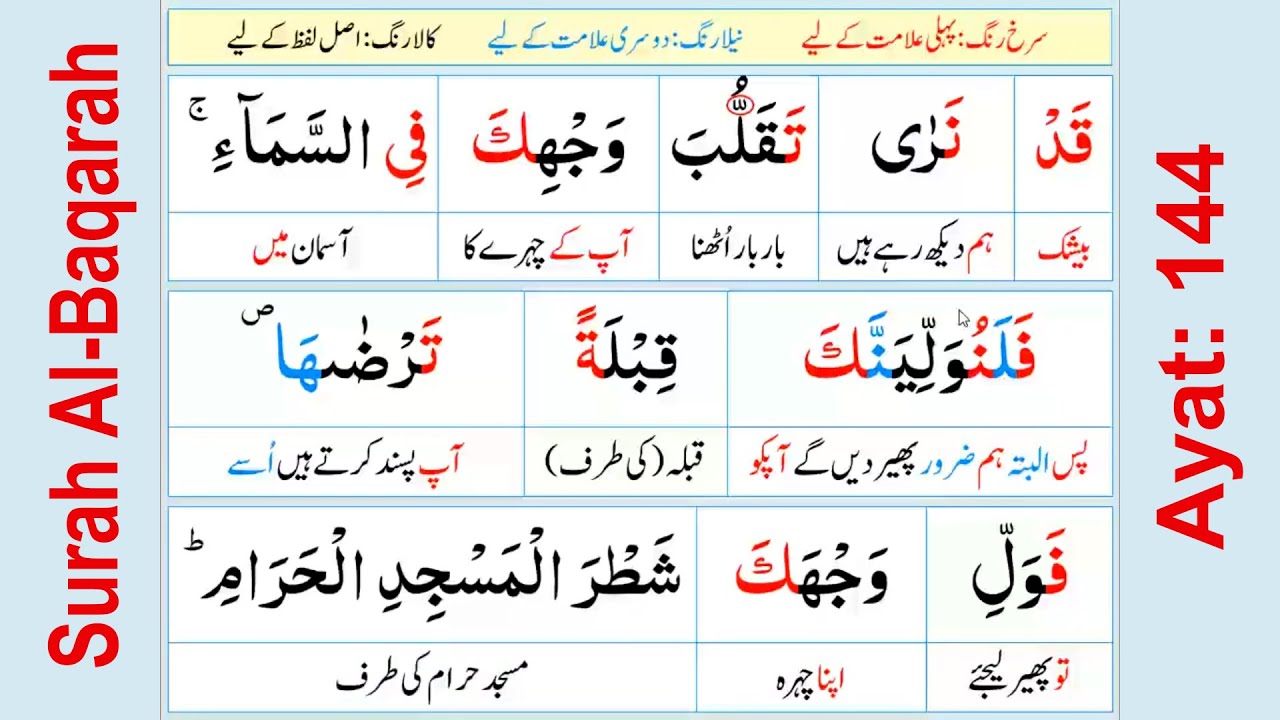 Surah Al-Baqarah
سرخ رنگ: پہلی علامت کے لیے نیلا رنگ: دوسری علامت کے لیے کالا رنگ: اصل لفظ کے لیے
قَدْ نَرٰى تَقَلُّبَ وَجْهِكَ فِي السَّمَآءِ ۚ
بیشک ہم دیکھ رہے ہیں بار بار اُٹھنا آپ کے چہرے کا آسمان میں
فَلَنُوَلِّيَنَّكَ قِبْلَةً تَرْضٰىهَا ۖ
پس البتہ ہم ضرور پھیر دیں گے آپکو قبلہ (کی طرف) آپ پسند کرتے ہیں اُسے
فَوَلِّ وَجْهَكَ شَطْرَ الْمَسْجِدِ الْحَرَامِ ؕ
تو پھیر لیجئے اپنا چہرہ مسجد حرام کی طرف
Ayat: 144